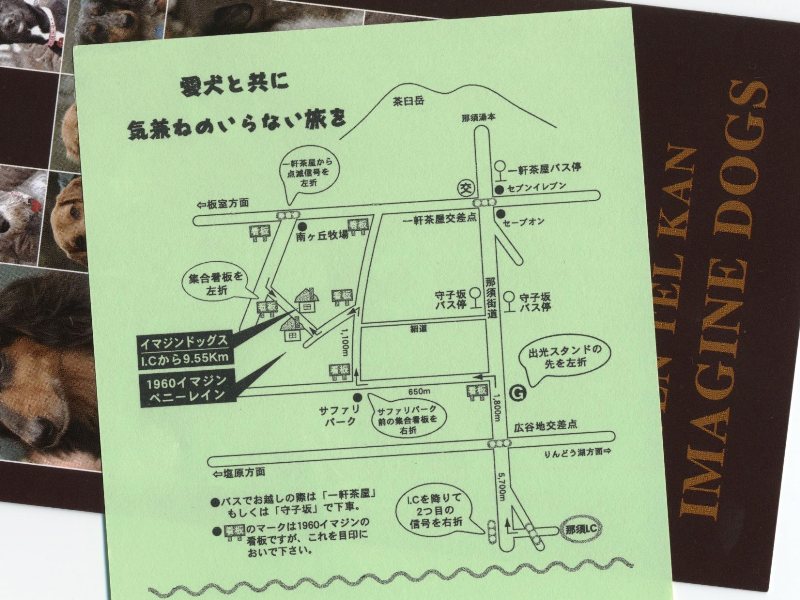 愛犬と共に
気兼ねのいらない旅を
茶臼岳
那須湯本
一軒茶屋から
点滅信号を
左折
交
一軒茶屋バス停
セブンイレブン
⇦板室方面
看板
南ヶ丘牧場
看板
一軒茶屋交差点
セーブオン
集合看板を
左折
看板
看板
守子坂
バス停
那須街道
守子坂
バス停
細道
イマジンドッグス
I.Cから9.55Km
1,100m
出光スタンドの
先を左折
1960イマジン
ペニーレイン
看板
650m
看板
G
1,800m
サファリ
パーク
サファリパーク
前の集合看板を
右折
広谷地交差点
りんどう湖方面⇨
⇦塩原方面
5,700m
●バスでお越しの際は「一軒茶屋」
もしくは「守子坂」で下車。
I.Cを降りて
2つ目の
信号を右折
那須I.C
●看板のマークは1960イマジンの
看板ですが、これを目印に
おいで下さい。
EN TEL KAN
IMAGINE DOGS